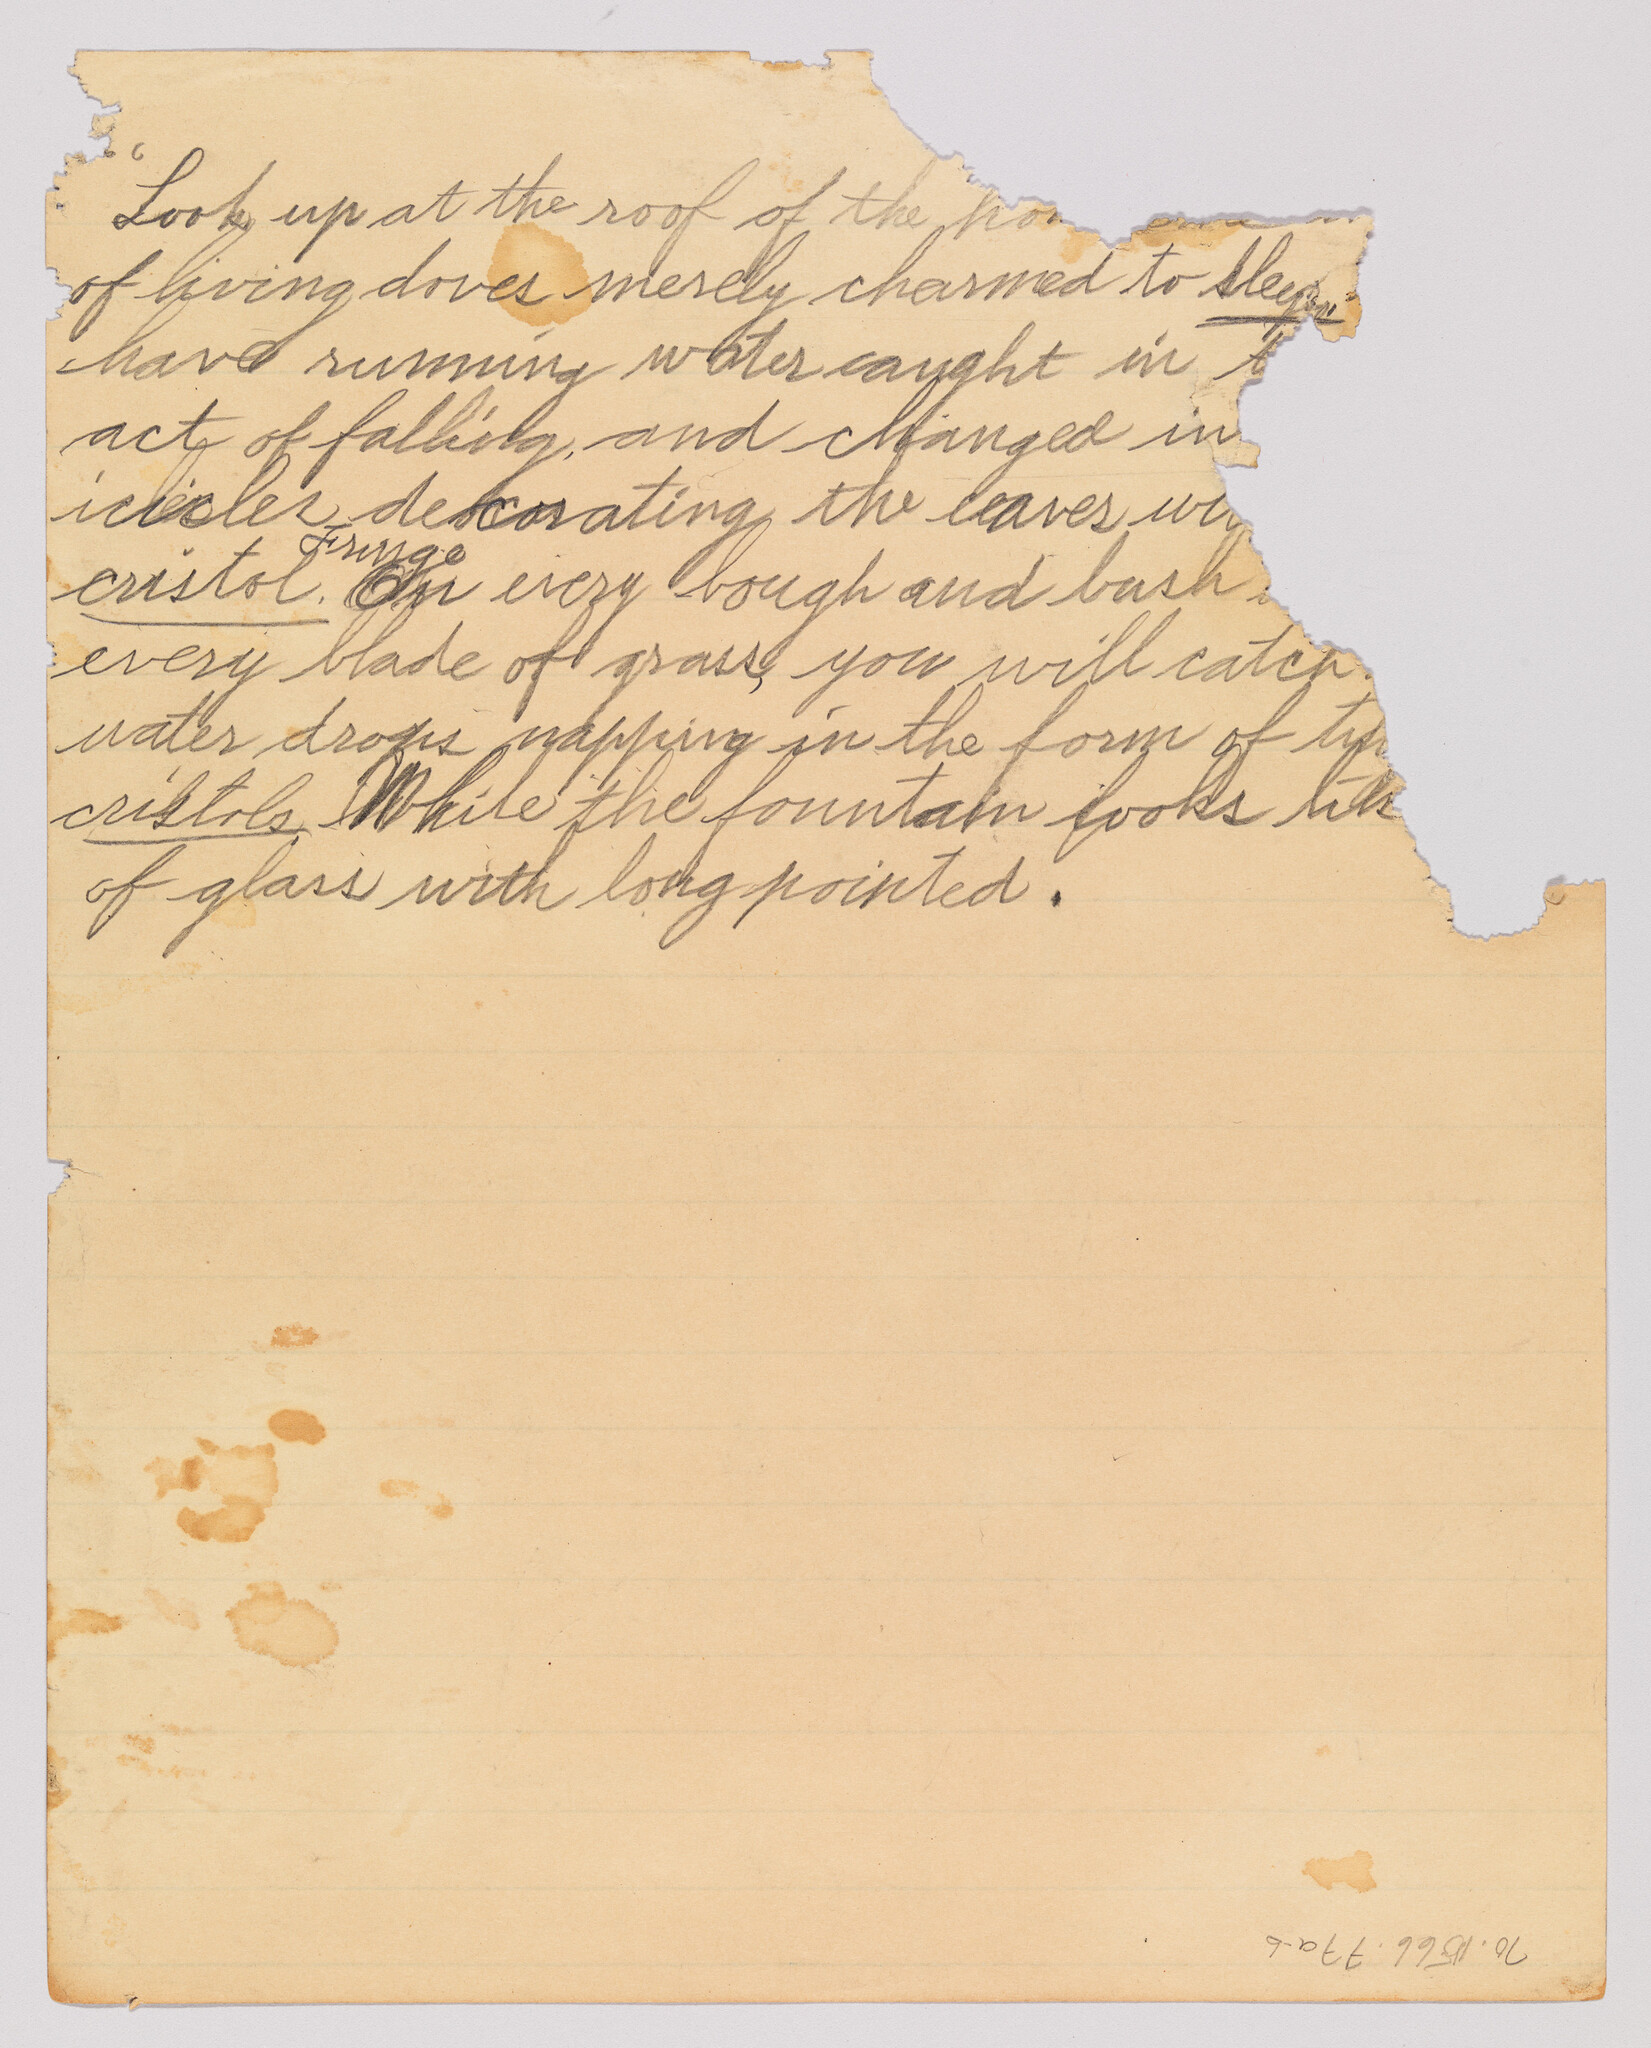 "Look up at the roof of the
of living doves merely charmed to sleep
have running water caught in
act of falling, and changed in
icicles decorating the eaves
Fringe
cristol. On every bough and bush
every blade of grass, you will catch
water drops napping in the form of
cristols. While the fountain looks
of glass with long pointed.
70.1566.77a-b